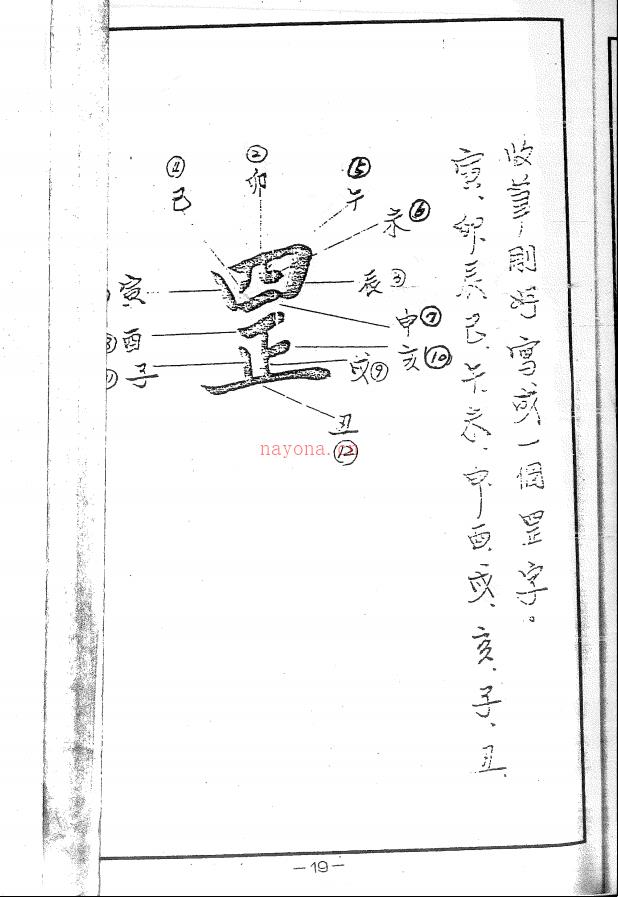 收筆則將寫或一個罡字。
寅、卯辰巳、午未、申酉戌、亥、子、丑
⑪ ② ⑤
己 卯 午
未⑥
寅 辰③
申⑦
酉 亥⑩
子 戌⑨
丑
⑫
罡
nayona.cn
—19—